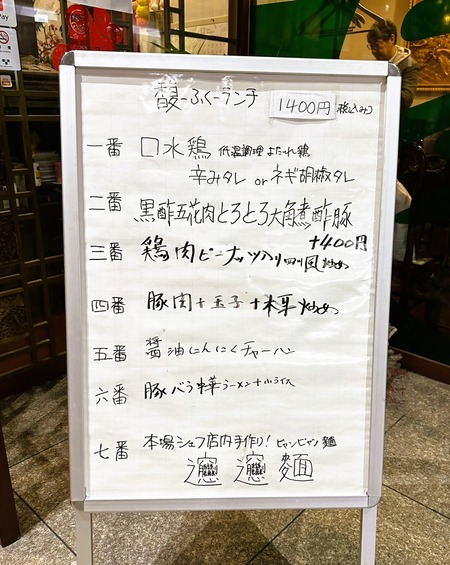 馥-ふく-ランチ 1400円 税込み
一番 口水鶏 低温調理 よだれ鶏
辛みタレ or ネギ胡椒タレ
二番 黒酢五花肉とろとろ大角煮酢豚
+400円
三番 鶏肉ピーナッツ入り四川風炒め
四番 豚肉+玉子+木耳炒め
五番 醤油にんにくチャーハン
六番 豚バラ ラーメン+小ライス
七番 本場シェフ店内手作り! ビャンビャン麺
𰻞𰻞麵
Pay